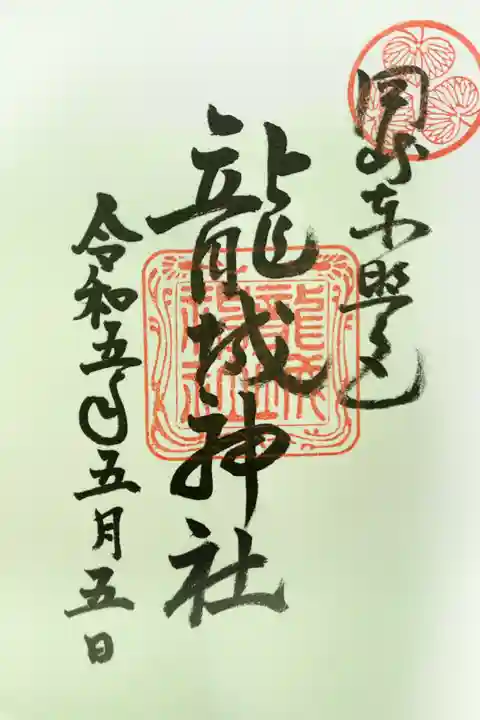 岡崎東照宮
龍城神社
令和五年五月五日
龍城神社